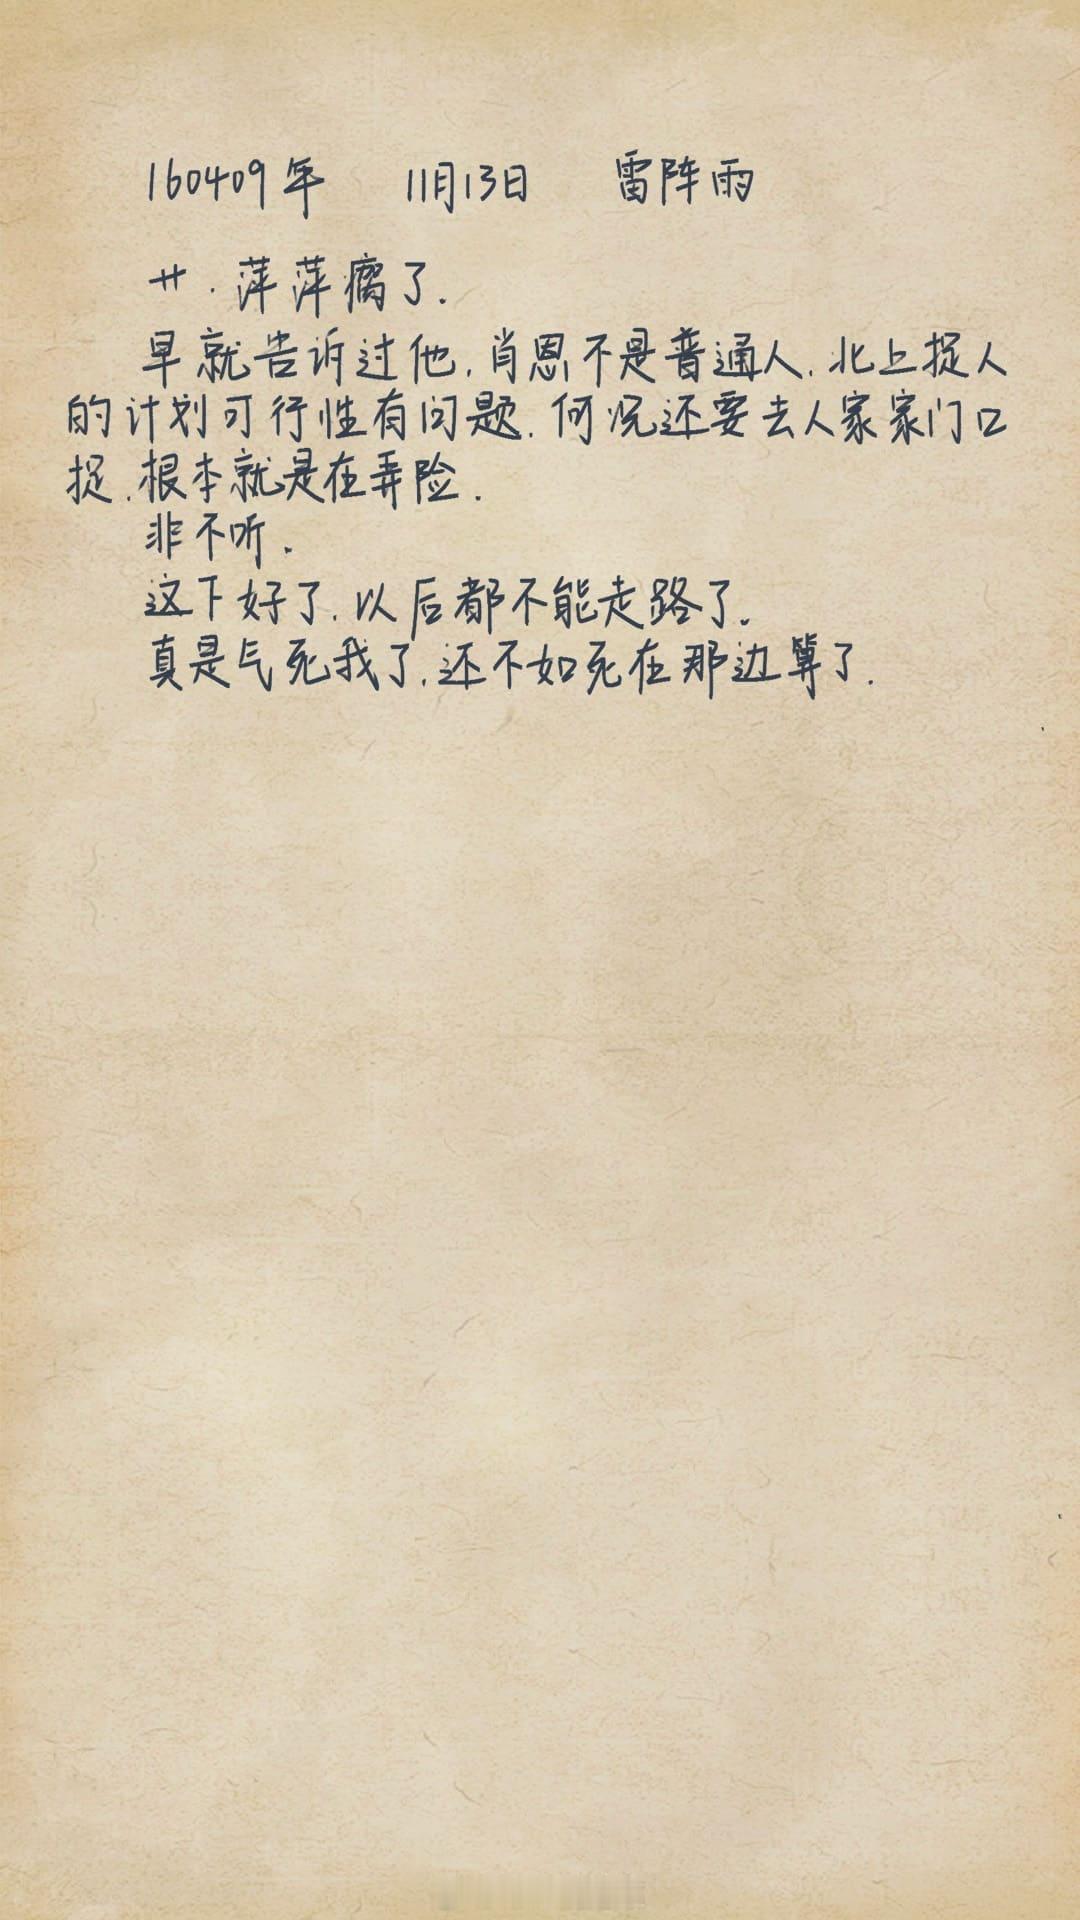 160409年 11月13日 雷阵雨
艹.萍萍瘸了.
早就告诉过他,肖恩不是普通人.北上捉人
的计划可行性有问题.何况还要去人家家门口
捉.根本就是在弄险.
非不听.
这下好了.以后都不能走路了.
真是气死我了.还不如死在那边算了.